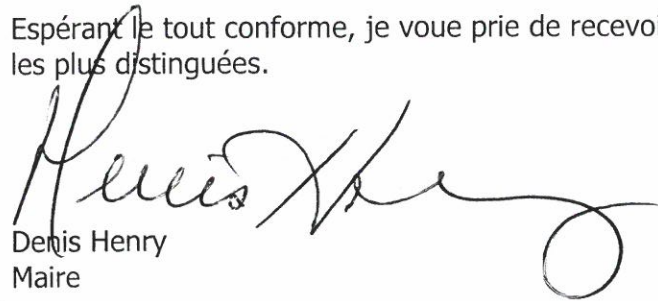 Espérant le tout conforme, je voue prie de recevoi
les plus distinguées.
Denis Henry
Denis Henry
Maire